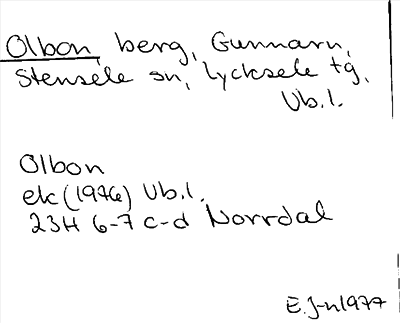 Olbon, berg, Gunnarn,
Stensele sn, Lycksele tg,
Vb.l.
Olbon
ek (1976) Vb.l.
23H 6-7 c-d Norrdal
E.J-n 1977